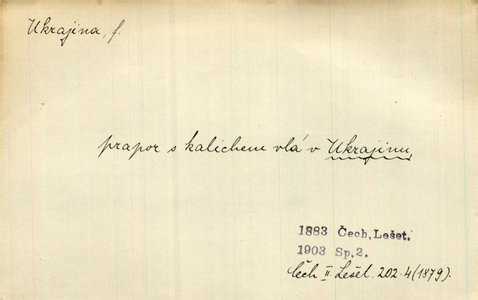 Ukrajina, f.
prapor s kalichem vlá v Ukrajinu
1883 Čech, Lešet.
1903 Sp,2.
Čech II Lešet. 202.4 (1879).